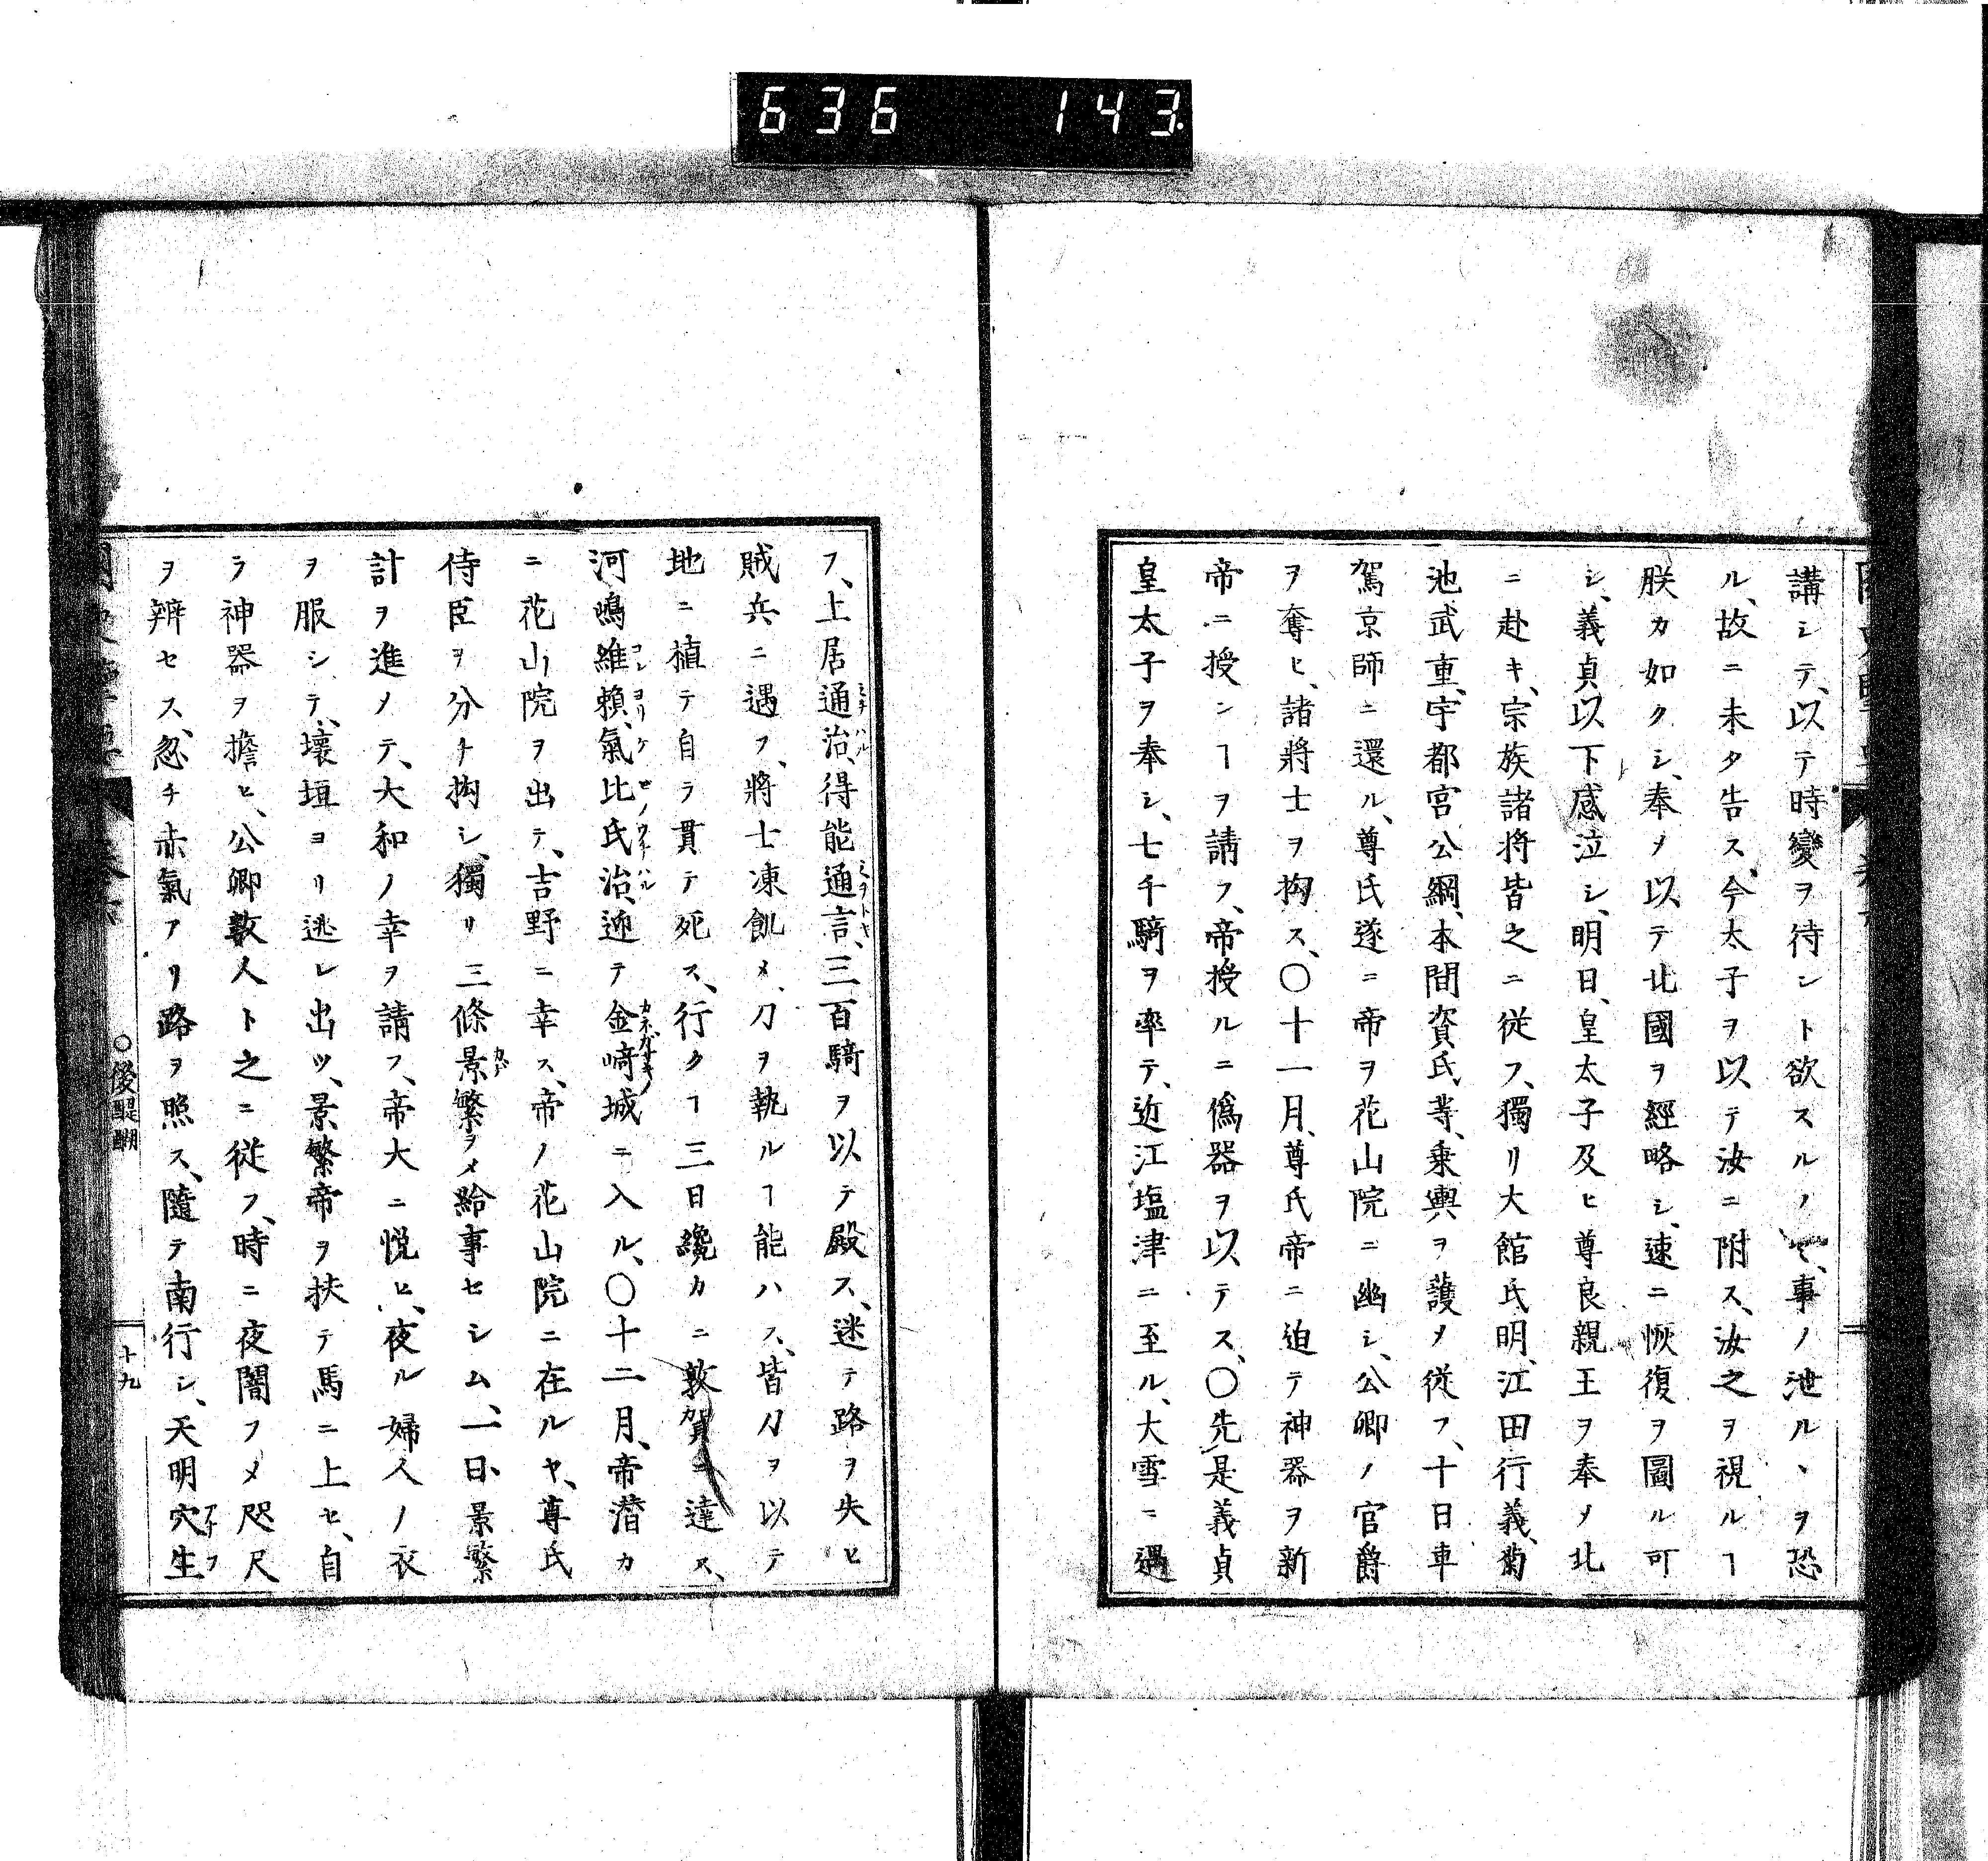 636 143.
講シテ、以テ時變ヲ待ント欲スルノミ、事ノ泄ルヽヲ恐
ル、故ニ未タ告ス、今太子ヲ以テ汝ニ附ス、汝之ヲ視ルヿ
朕カ如クシ、奉メ以テ北國ヲ經略シ、速ニ恢復ヲ圖ル可
シ、義貞以下感泣シ、明日、皇太子及ヒ尊良親王ヲ奉メ北
ニ赴キ、宗族諸将皆之ニ従フ、獨リ大館氏明、江田行義、菊
池武重、宇都宮公綱、本間資氏、等、乗輿ヲ護メ従フ、十日車
駕京師ニ還ル、尊氏遂ニ帝ヲ花山院ニ幽シ、公卿ノ官爵
ヲ奪ヒ、諸將士ヲ拘ス、〇十一月、尊氏帝ニ迫テ神器ヲ新
帝ニ授ンヿヲ請フ、帝授ルニ僞器ヲ以テス、〇先是義貞
皇太子ヲ奉シ、七千騎ヲ率テ、近江塩津ニ至ル、大雪ニ遇
フ、土居通治、得能通言、三百騎ヲ以テ殿ス、迷テ路ヲ失ヒ
賊兵ニ遇フ、將士凍飢メ、刀ヲ執ルヿ能ハス、皆刀ヲ以テ
地ニ植テ自ラ貫テ死ス、行クヿ三日纔カニ敦賀ニ達ス、
河嶋維頼、氣比氏治、迎テ金﨑城ニ入ル、〇十二月、帝潜カ
ニ花山院ヲ出テ、吉野ニ幸ス、帝ノ花山院ニ在ルヤ、尊氏
侍臣ヲ分チ拘シ、獨リ三條景繁ヲメ給事セシム、一日、景繁
計ヲ進メテ、大和ノ幸ヲ請フ、帝大ニ悦ヒ、夜ル婦人ノ衣
ヲ服シテ、壊垣ヨリ逃レ出ツ、景繁帝ヲ扶テ馬ニ上セ、自
ラ神器ヲ擔ヒ、公卿數人ト之ニ従フ、時ニ夜闇フメ咫尺
ヲ辨セス、忽チ赤氣アリ路ヲ照ス、隨テ南行シ、天明穴生
〇後醍醐
十九